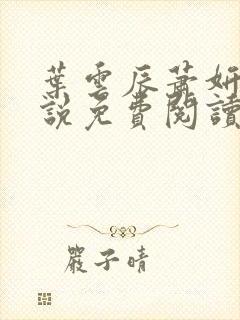 葉雲辰蕭妍
說免費閱讀
嚴子晴